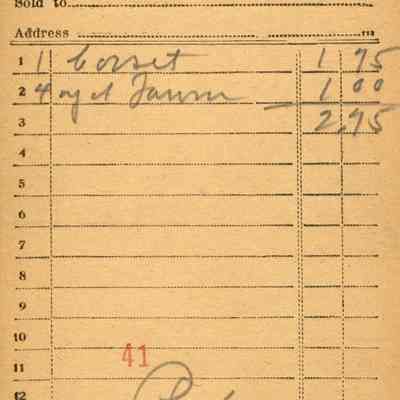 Sold to
Address
1 1 Corset 1 75
2 4 yd 1 00
3 2.75
4
5
6
7
8
9
10
41
11
12